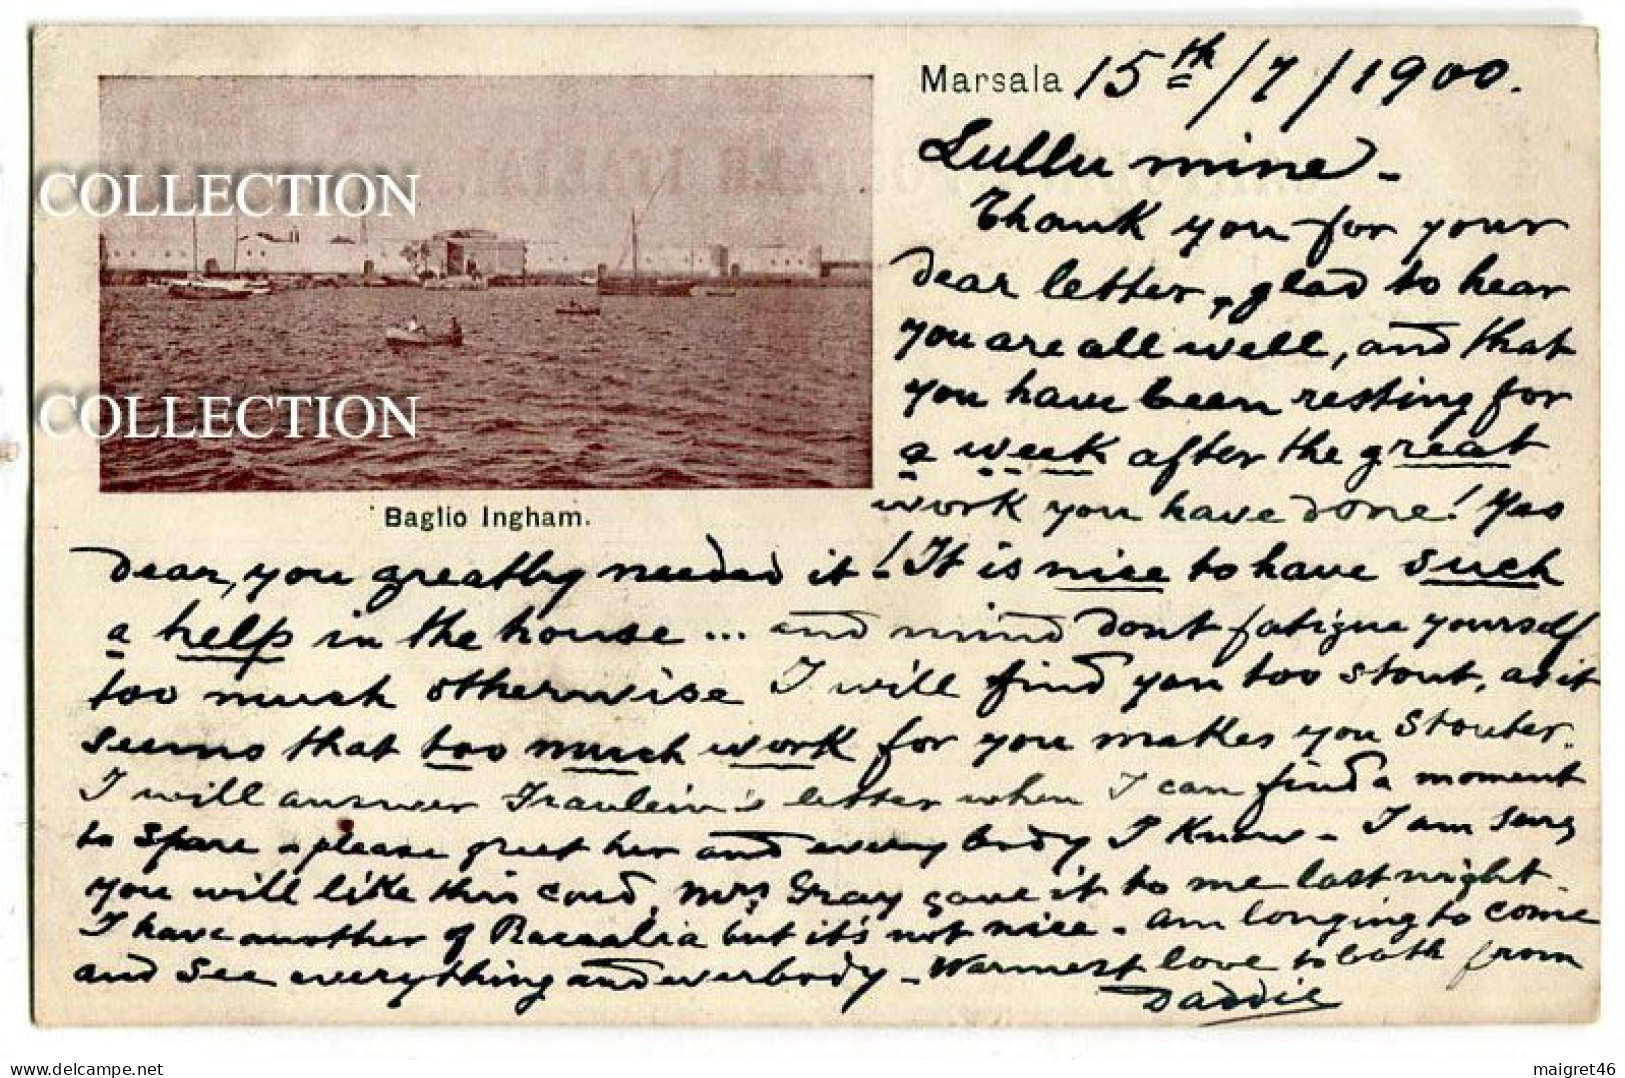 Marsala 15th/7/1900.
Lullu mine -
Thank you for your
dear letter, glad to hear
you are all well, and that
you have been resting for
a week after the great
work you have done! Yes
dear, you greatly needed it! It is nice to have such
a help in the house ... and mind dont fatigue yourself
too much otherwise I will find you too stout, as it
seems that too much work for you makes you stouter.
I will answer Fraulein's letter when I can find a moment
to spare - please greet her and every body I know - I am sure
you will like this card, Mrs Gray gave it to me last night.
I have another of but it's not nice - am longing to come
and see everything and everbody - Warmest love to both from
Daddie
Baglio Ingham.
COLLECTION
COLLECTION
https://www.delcampe.net
maigret46